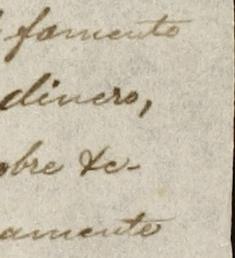 fomento
dinero,
obre te-
amente